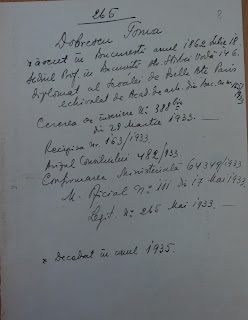 266
Dobrescu Toma
născut în București anul 1862 Iulie 18.
Sediul Prof. în București St. Știrbei Vodă 146
Diplomat al Școalei de Belle Arte Paris
echivalat de Acad. de arh. din Buc.
Cererea de înscriere No. 388
din 28 Martie 1933.
Recipisa nr. 163/1933.
Avizul Consiliului 482/933
Confirmarea Ministerială 64349/1933
M. Oficial No. 111 din 17 Mai 1933
Legit. No. 266 Mai 1933.
* Decedat în anul 1935.